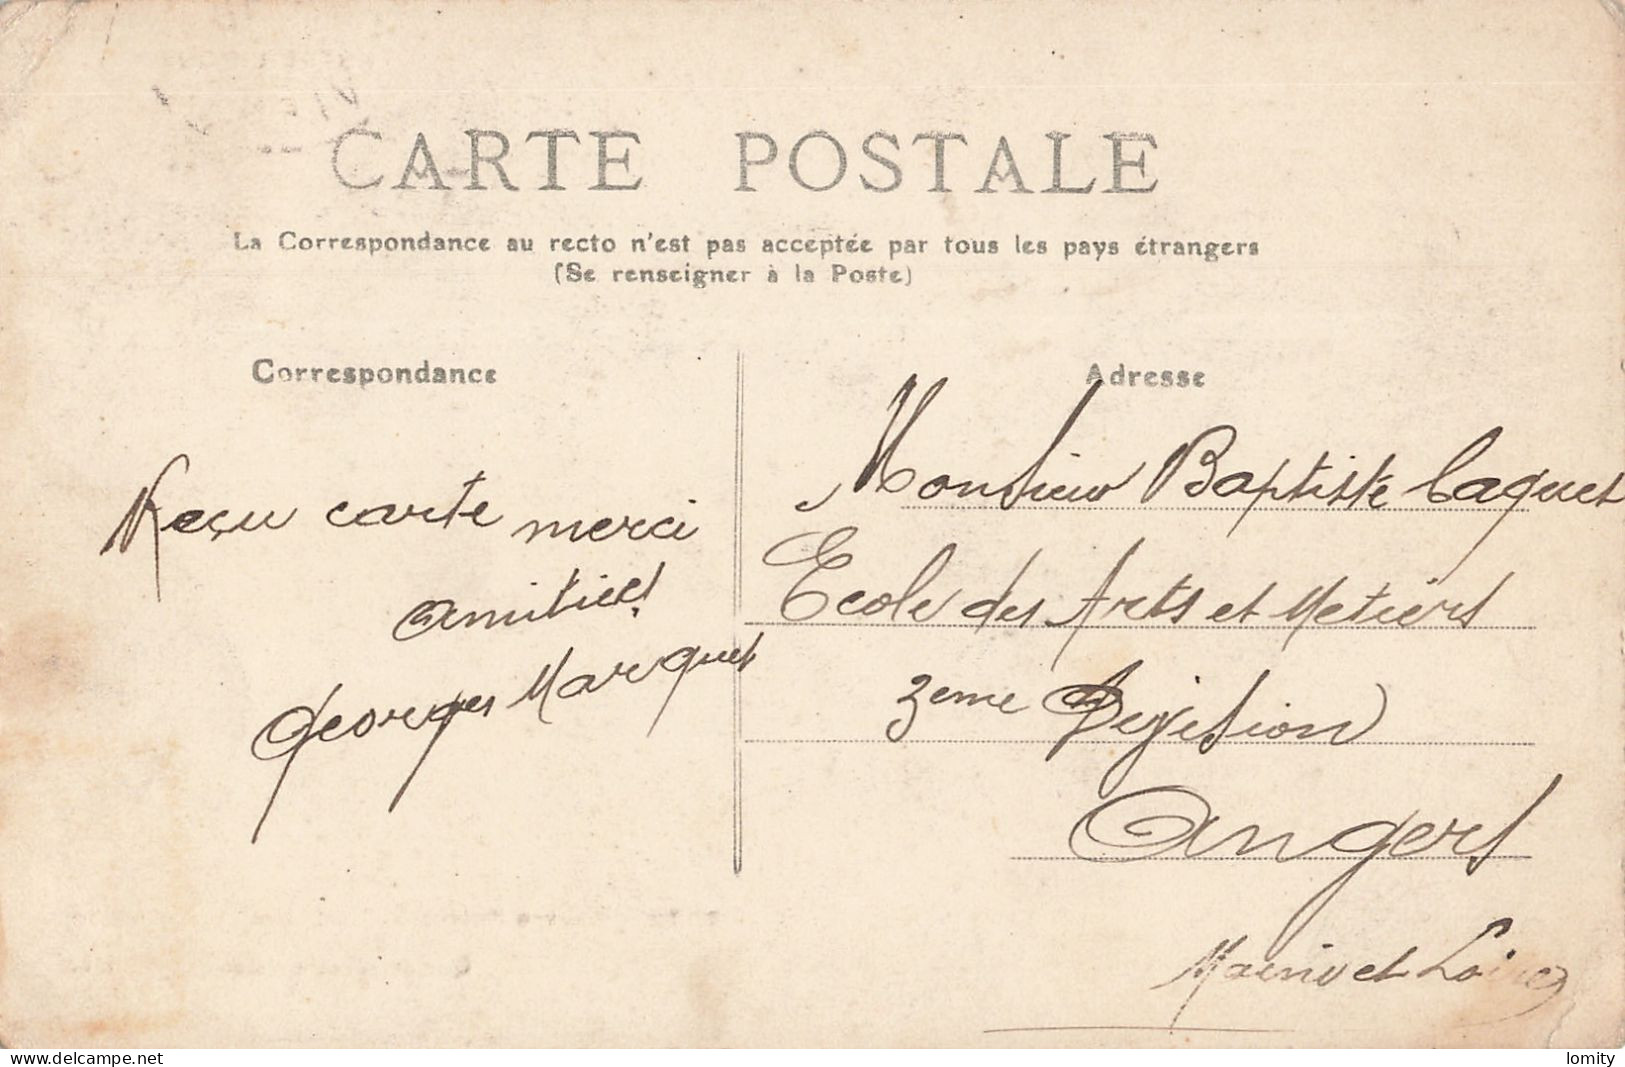 CARTE POSTALE
La Correspondance au recto n'est pas acceptée par tous les pays étrangers
(Se renseigner à la Poste)
Correspondance
Reçu carte merci
amitiés
Georges Marquet
Adresse
Monsieur Baptiste Caquet
Ecole des Arts et Metiers
3eme Division
Angers
Maine et Loire
www.delcampe.net
lomity